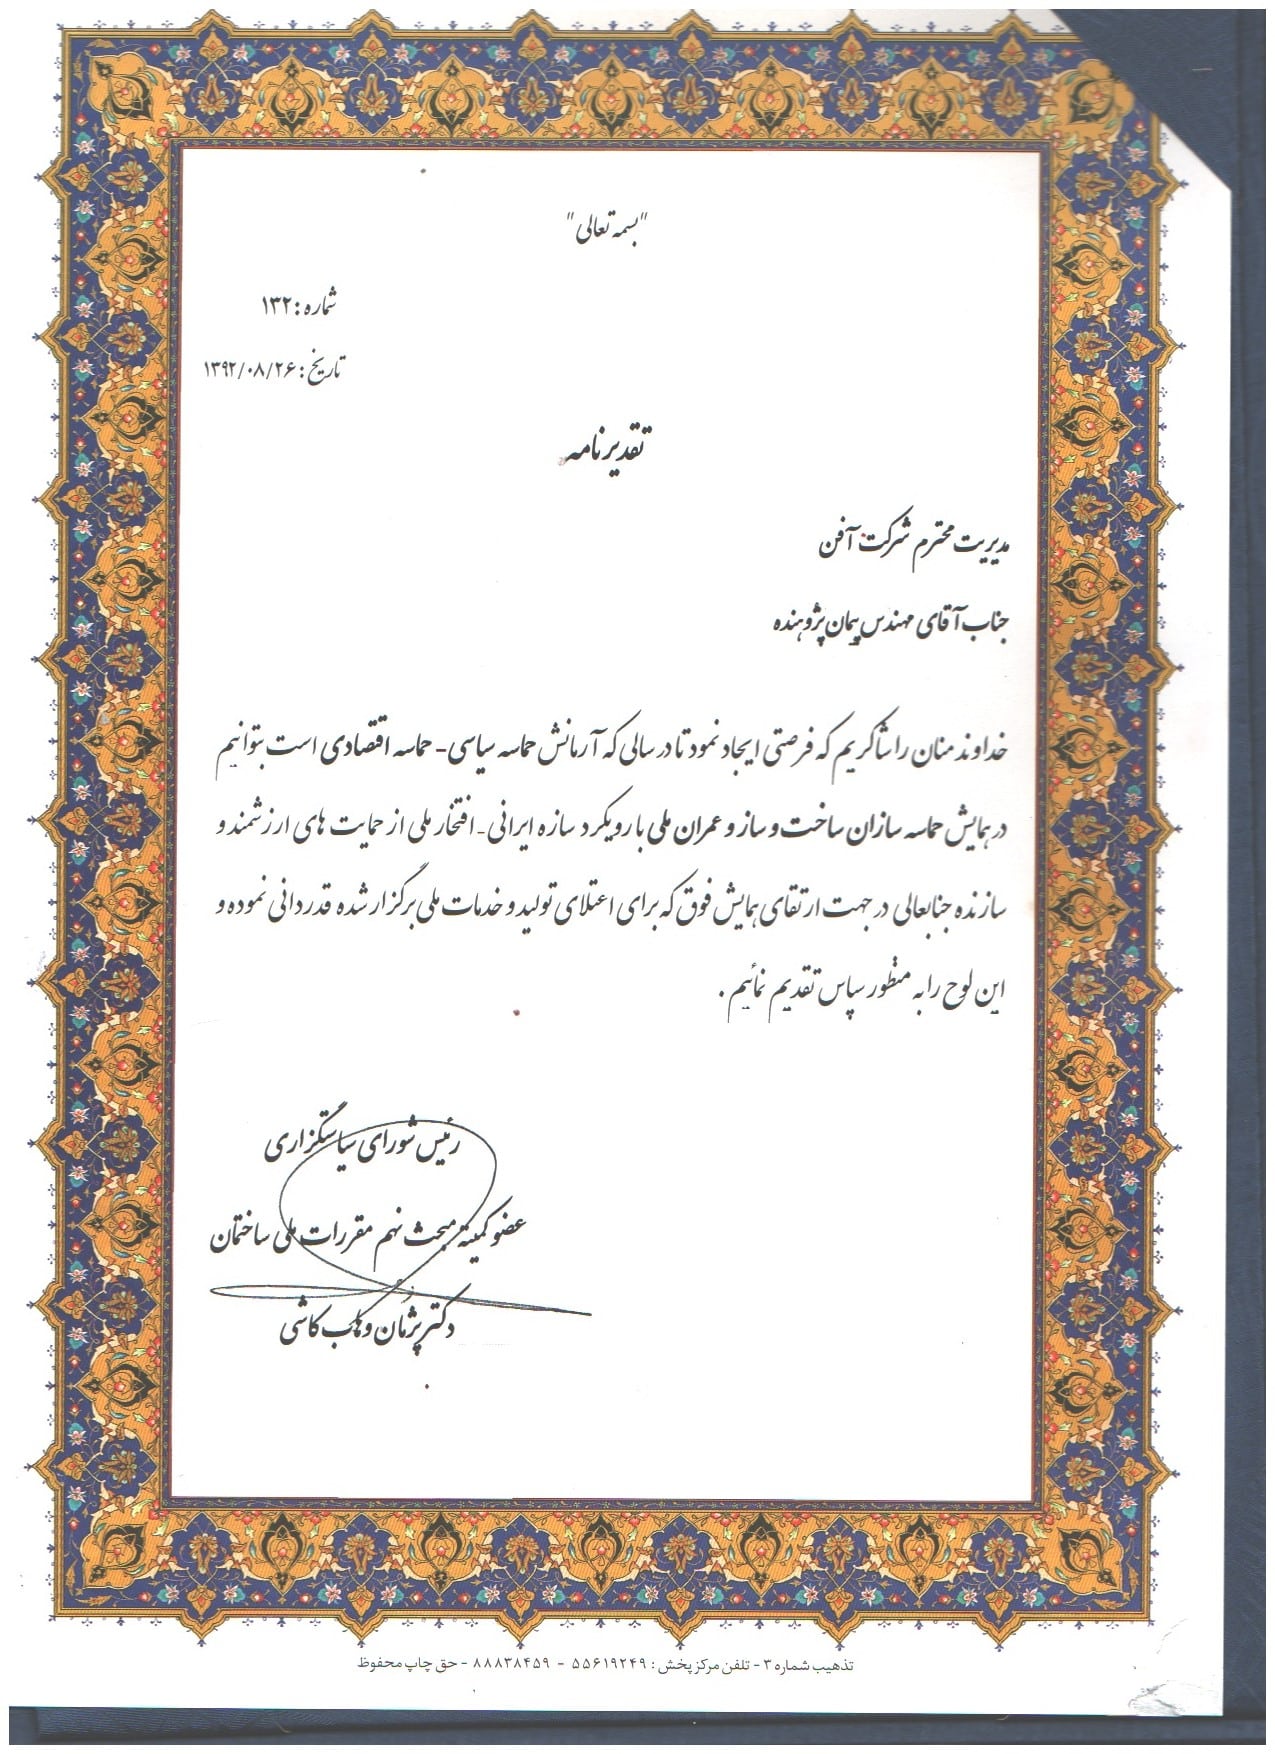 "بسمه تعالی"
شماره : ۱۳۲
تاریخ : ۱۳۹۲/۰۸/۲۶
تقدیر نامه
مدیریت محترم شرکت آفن
جناب آقای مهندس پیمان پژوهنده
خداوند منان را شاکریم که فرصتی ایجاد نمود تا در سالی که آرمانش حماسه سیاسی - حماسه اقتصادی است بتوانیم
در همایش حماسه سازان ساخت و ساز و عمران ملی با رویکرد سازه ایرانی - افتخار ملی از حمایت های ارزشمند و
سازنده جنابعالی در جهت ارتقای همایش فوق که برای اعتلای تولید و خدمات ملی برگزار شده قدردانی نموده و
این لوح را به منظور سپاس تقدیم نمائیم .
رئیس شورای سیاستگزاری
عضو کمیته مبحث نهم مقررات ملی ساختمان
دکتر پژمان وهاب کاشی
تذهیب شماره ۳ - تلفن مرکز پخش : ۵۵۶۱۹۲۴۹ - ۸۸۸۳۸۴۵۹ - حق چاپ محفوظ